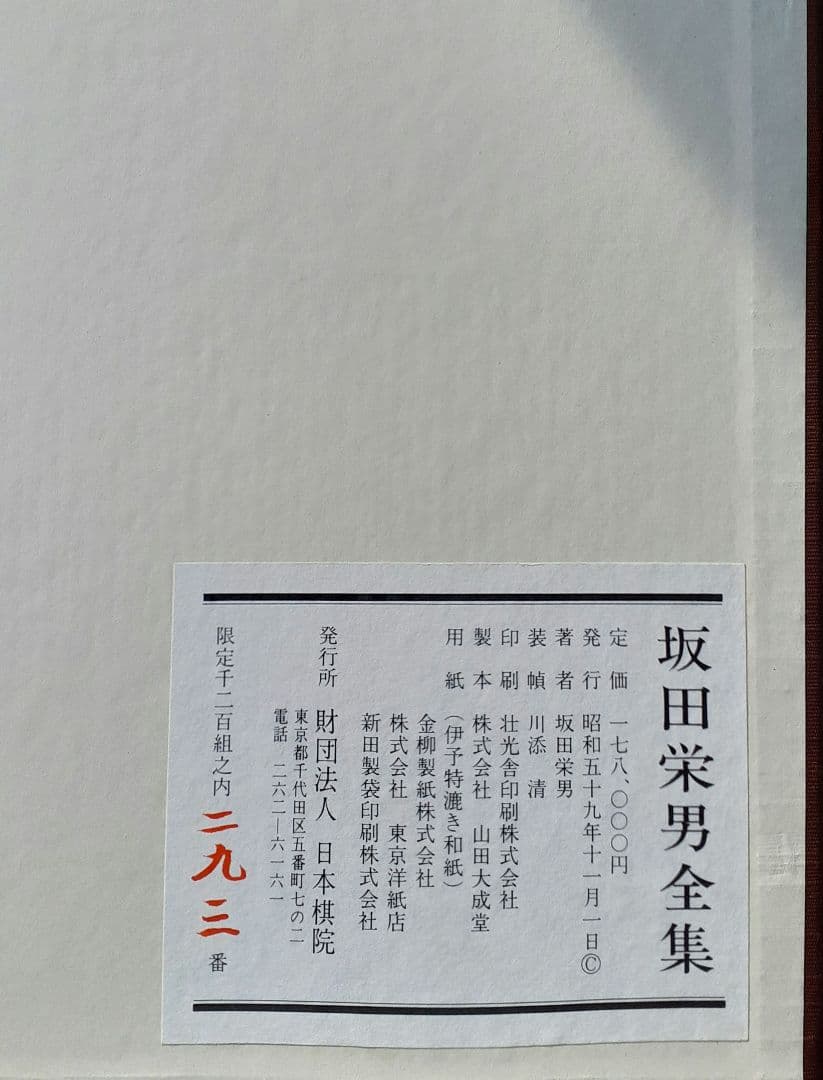 坂田栄男全集
定価 一七八、〇〇〇円
発行 昭和五十九年十一月一日Ⓒ
著者 坂田栄男
装幀 川添 清
印刷 壮光舎印刷株式会社
製本 株式会社 山田大成堂
用紙 (伊予特漉き和紙)
金柳製紙株式会社
株式会社 東京洋紙店
新田製袋印刷株式会社
発行所 財団法人 日本棋院
東京都千代田区五番町七の二
電話 二六二―六一六一
限定千二百組之内 二九三番